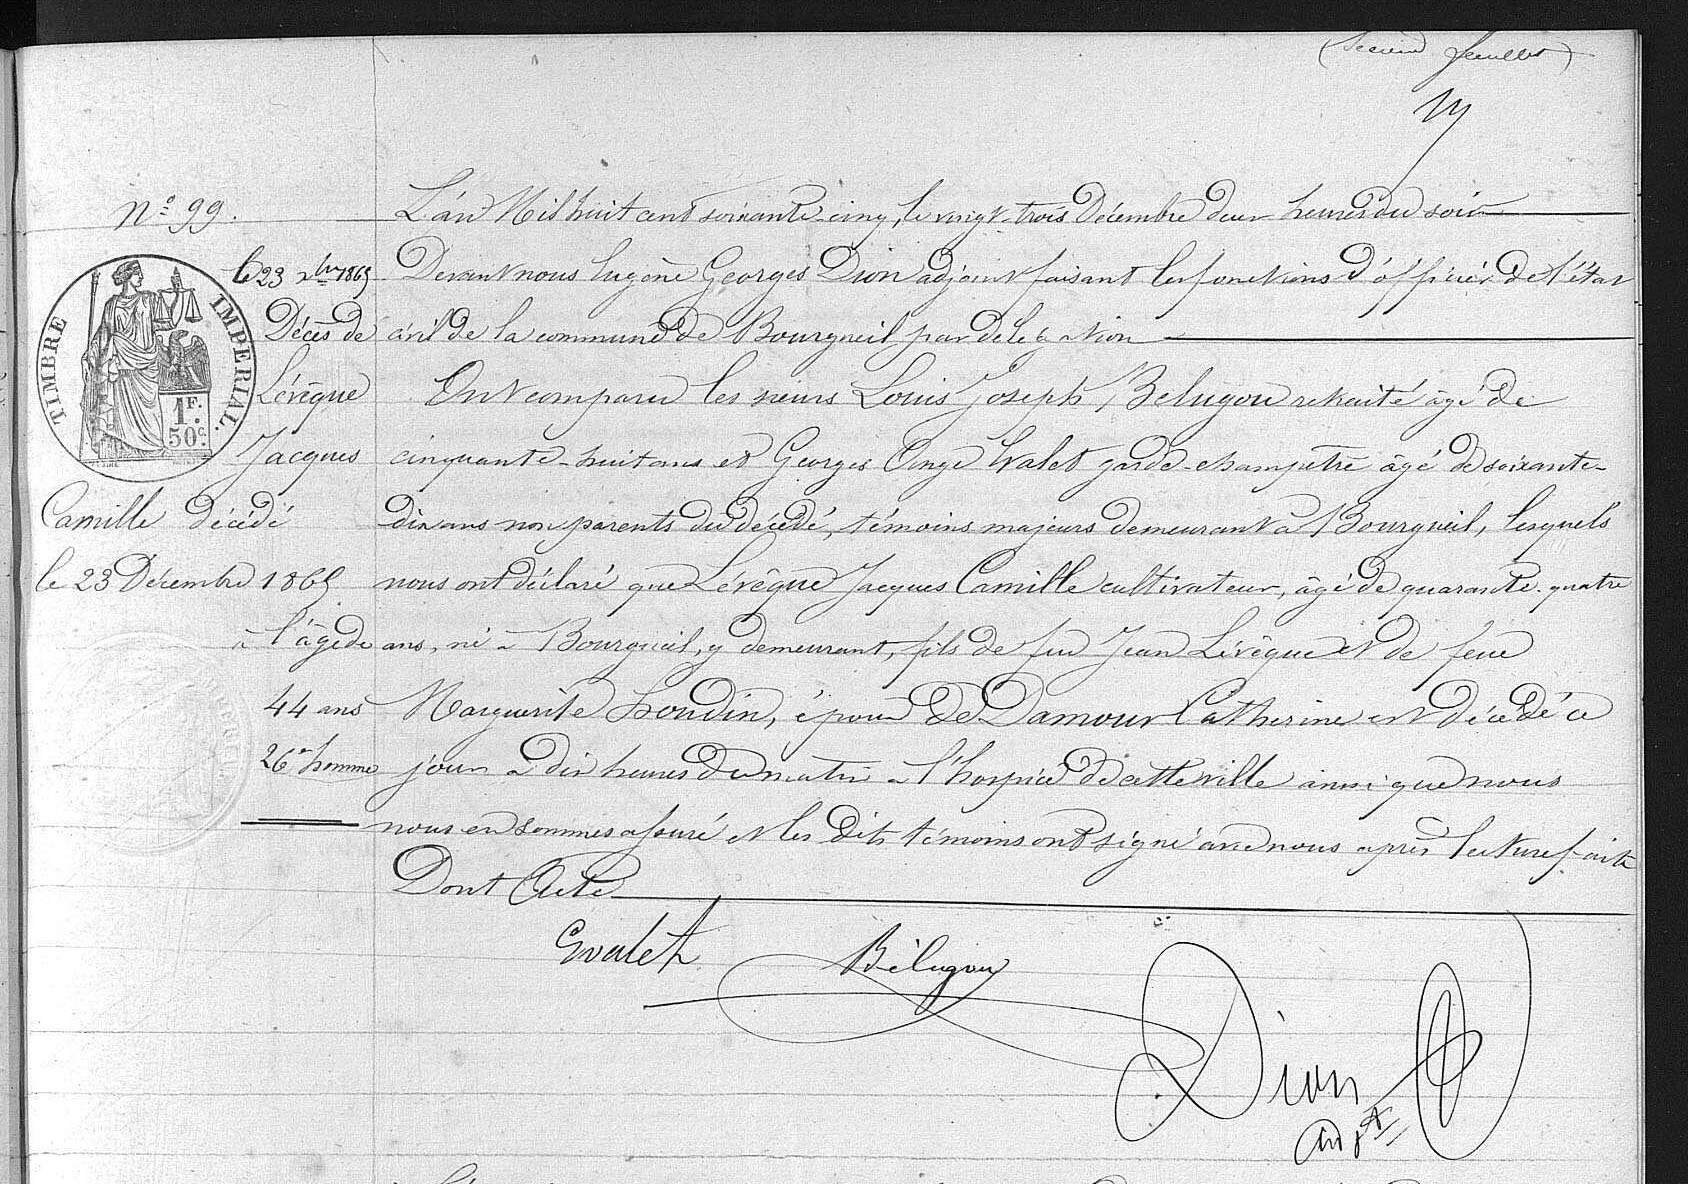 (Second feuillet)
N° 99.
L'an Mil huit cent soixante-cinq, le vingt-trois Décembre deux heures du soir
le 23 xbre 1865
Devant nous Eugène Georges Dion adjoint faisant les fonctions d'officier de l'état
TIMBRE IMPERIAL
1F.
50c.
Décès de
civil de la commune de Bourgueil par délégation
Lévêque
Ont comparu les sieurs Louis Joseph Belugou retraité âgé de
Jacques
cinquante-huit ans et Georges Ange Valet garde-champêtre âgé de soixante-
Camille décédé
dix ans non parents du décédé, témoins majeurs demeurant à Bourgueil, lesquels
le 23 Décembre 1865
nous ont déclaré que Lévêque Jacques Camille cultivateur, âgé de quarante-quatre
à l'âge de
ans, né à Bourgueil, y demeurant, fils de feu Jean Lévêque et de feue
44 ans
Marguerite Houdin, époux de Damour Catherine est décédé ce
26e homme
jour à dix heures du matin à l'hospice de cette ville ainsi que nous
nous en sommes assuré et les dits témoins ont signé avec nous après lecture faite
Dont Acte
Gvalet
Bélugou
Dion
adjt